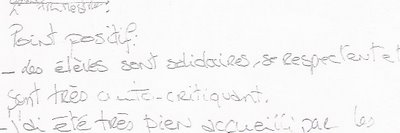 Point positif:
- les élèves sont solidaires, se respectent et
sont très critiquant.
- J'ai été très bien accueilli par les